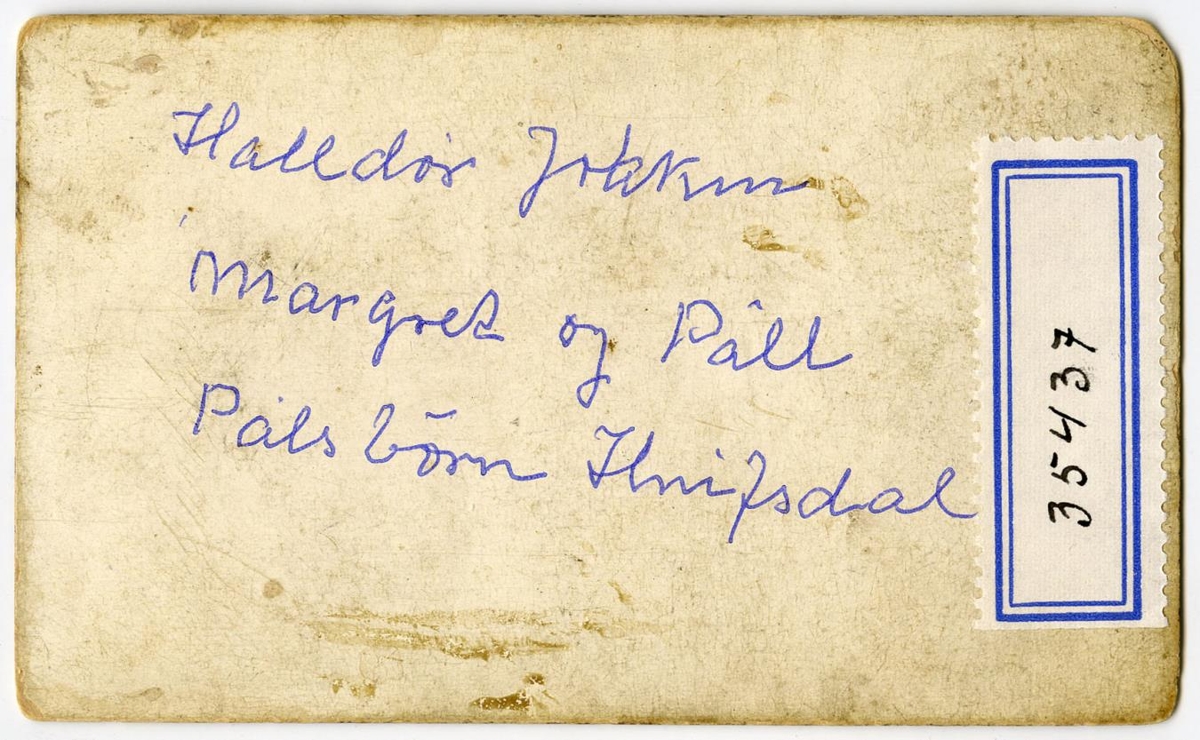 Halldór
Margret og Páll
Páls börn Hnifsdal
35437